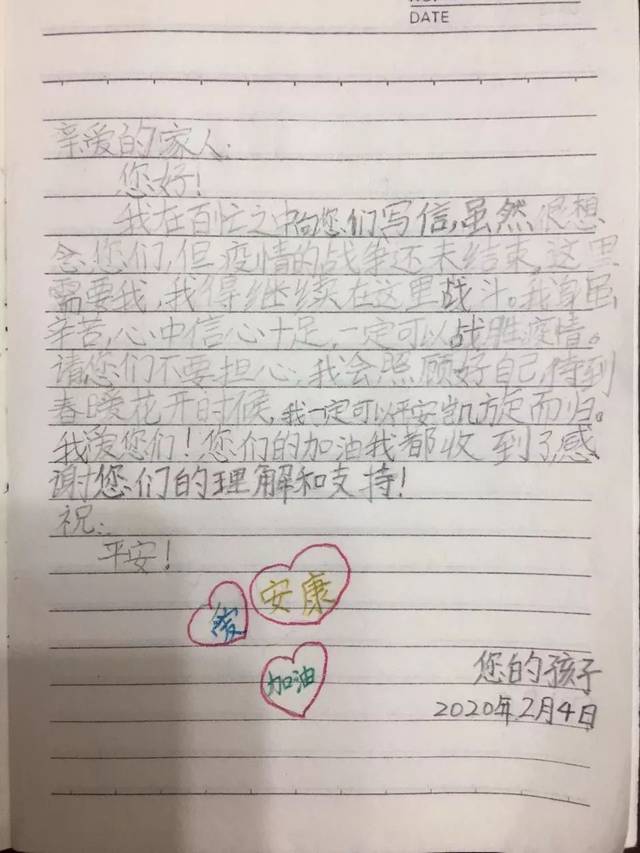 DATE
亲爱的家人:
您好!
我在百忙之中向您们写信,虽然很想
念您们,但疫情的战争还未结束,这里
需要我,我得继续在这里战斗。我身虽
辛苦,心中信心十足,一定可以战胜疫情。
请您们不要担心,我会照顾好自己,待到
春暖花开时候,我一定可以平安凯旋而归。
我爱您们!您们的加油我都收到了感
谢您们的理解和支持!
祝:
平安!
安康
爱
加油
您的孩子
2020年2月4日